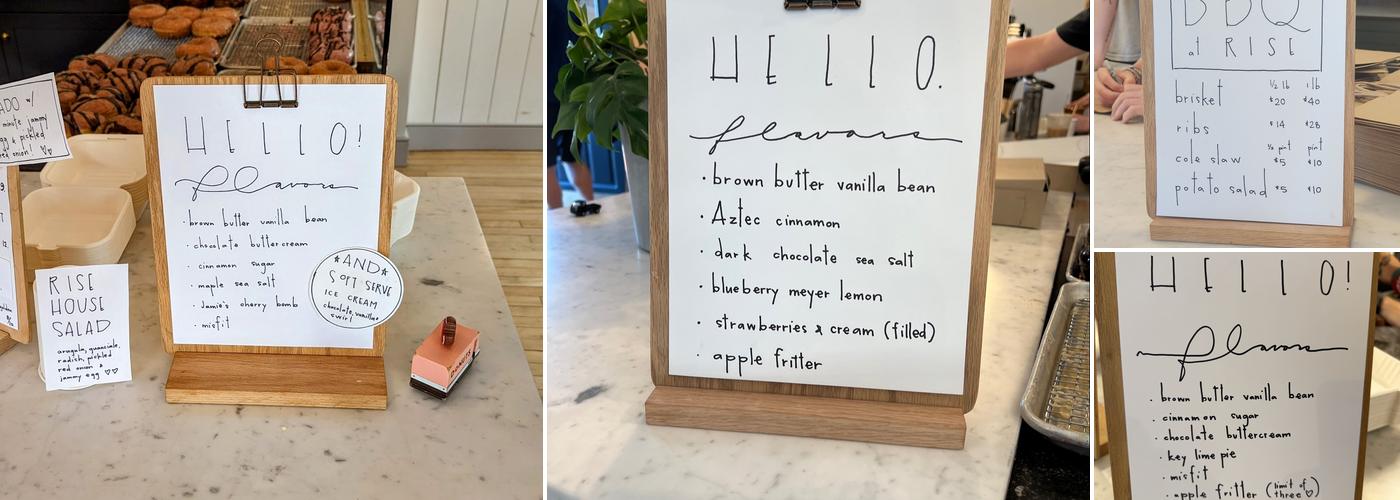 ADO w/
minute jammy
egg & pickled
red onion! ♡♡
RISE
HOUSE
SALAD
arugula, guanciale,
radish, pickled
red onion &
jammy egg ♡♡
HELLO!
flavors
· brown butter vanilla bean
· chocolate buttercream
· cinnamon sugar
· maple sea salt
· Jamie's cherry bomb
· misfit
*AND*
SOFT SERVE
ICE CREAM
chocolate, vanilla &
swirl
DONUTS
HELLO.
flavors
· brown butter vanilla bean
· Aztec cinnamon
· dark chocolate sea salt
· blueberry meyer lemon
· strawberries & cream (filled)
· apple fritter
BBQ
at RISE
½ lb 1 lb
brisket $20 $40
ribs $14 $28
½ pint pint
cole slaw $5 $10
potato salad $5 $10
HELLO!
flavors
· brown butter vanilla bean
· cinnamon sugar
· chocolate buttercream
· key lime pie
· misfit
· apple fritter (limit of three ♡)